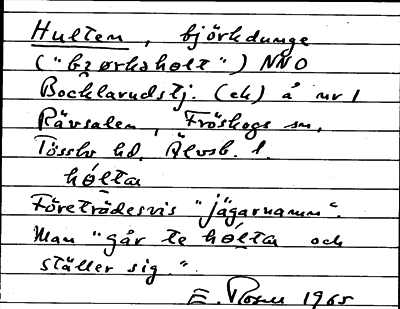 Hulten, björkdunge
("bjørkholt") NNO
Bocklarudstj. (ek) å nr 1
Rävsalen, Fröskogs sn,
Tössbo hd. Älvsb. l.
hóltan
Företrädesvis "jägarnamn".
Man "går te hóltan och
ställer sig".
E. 1965